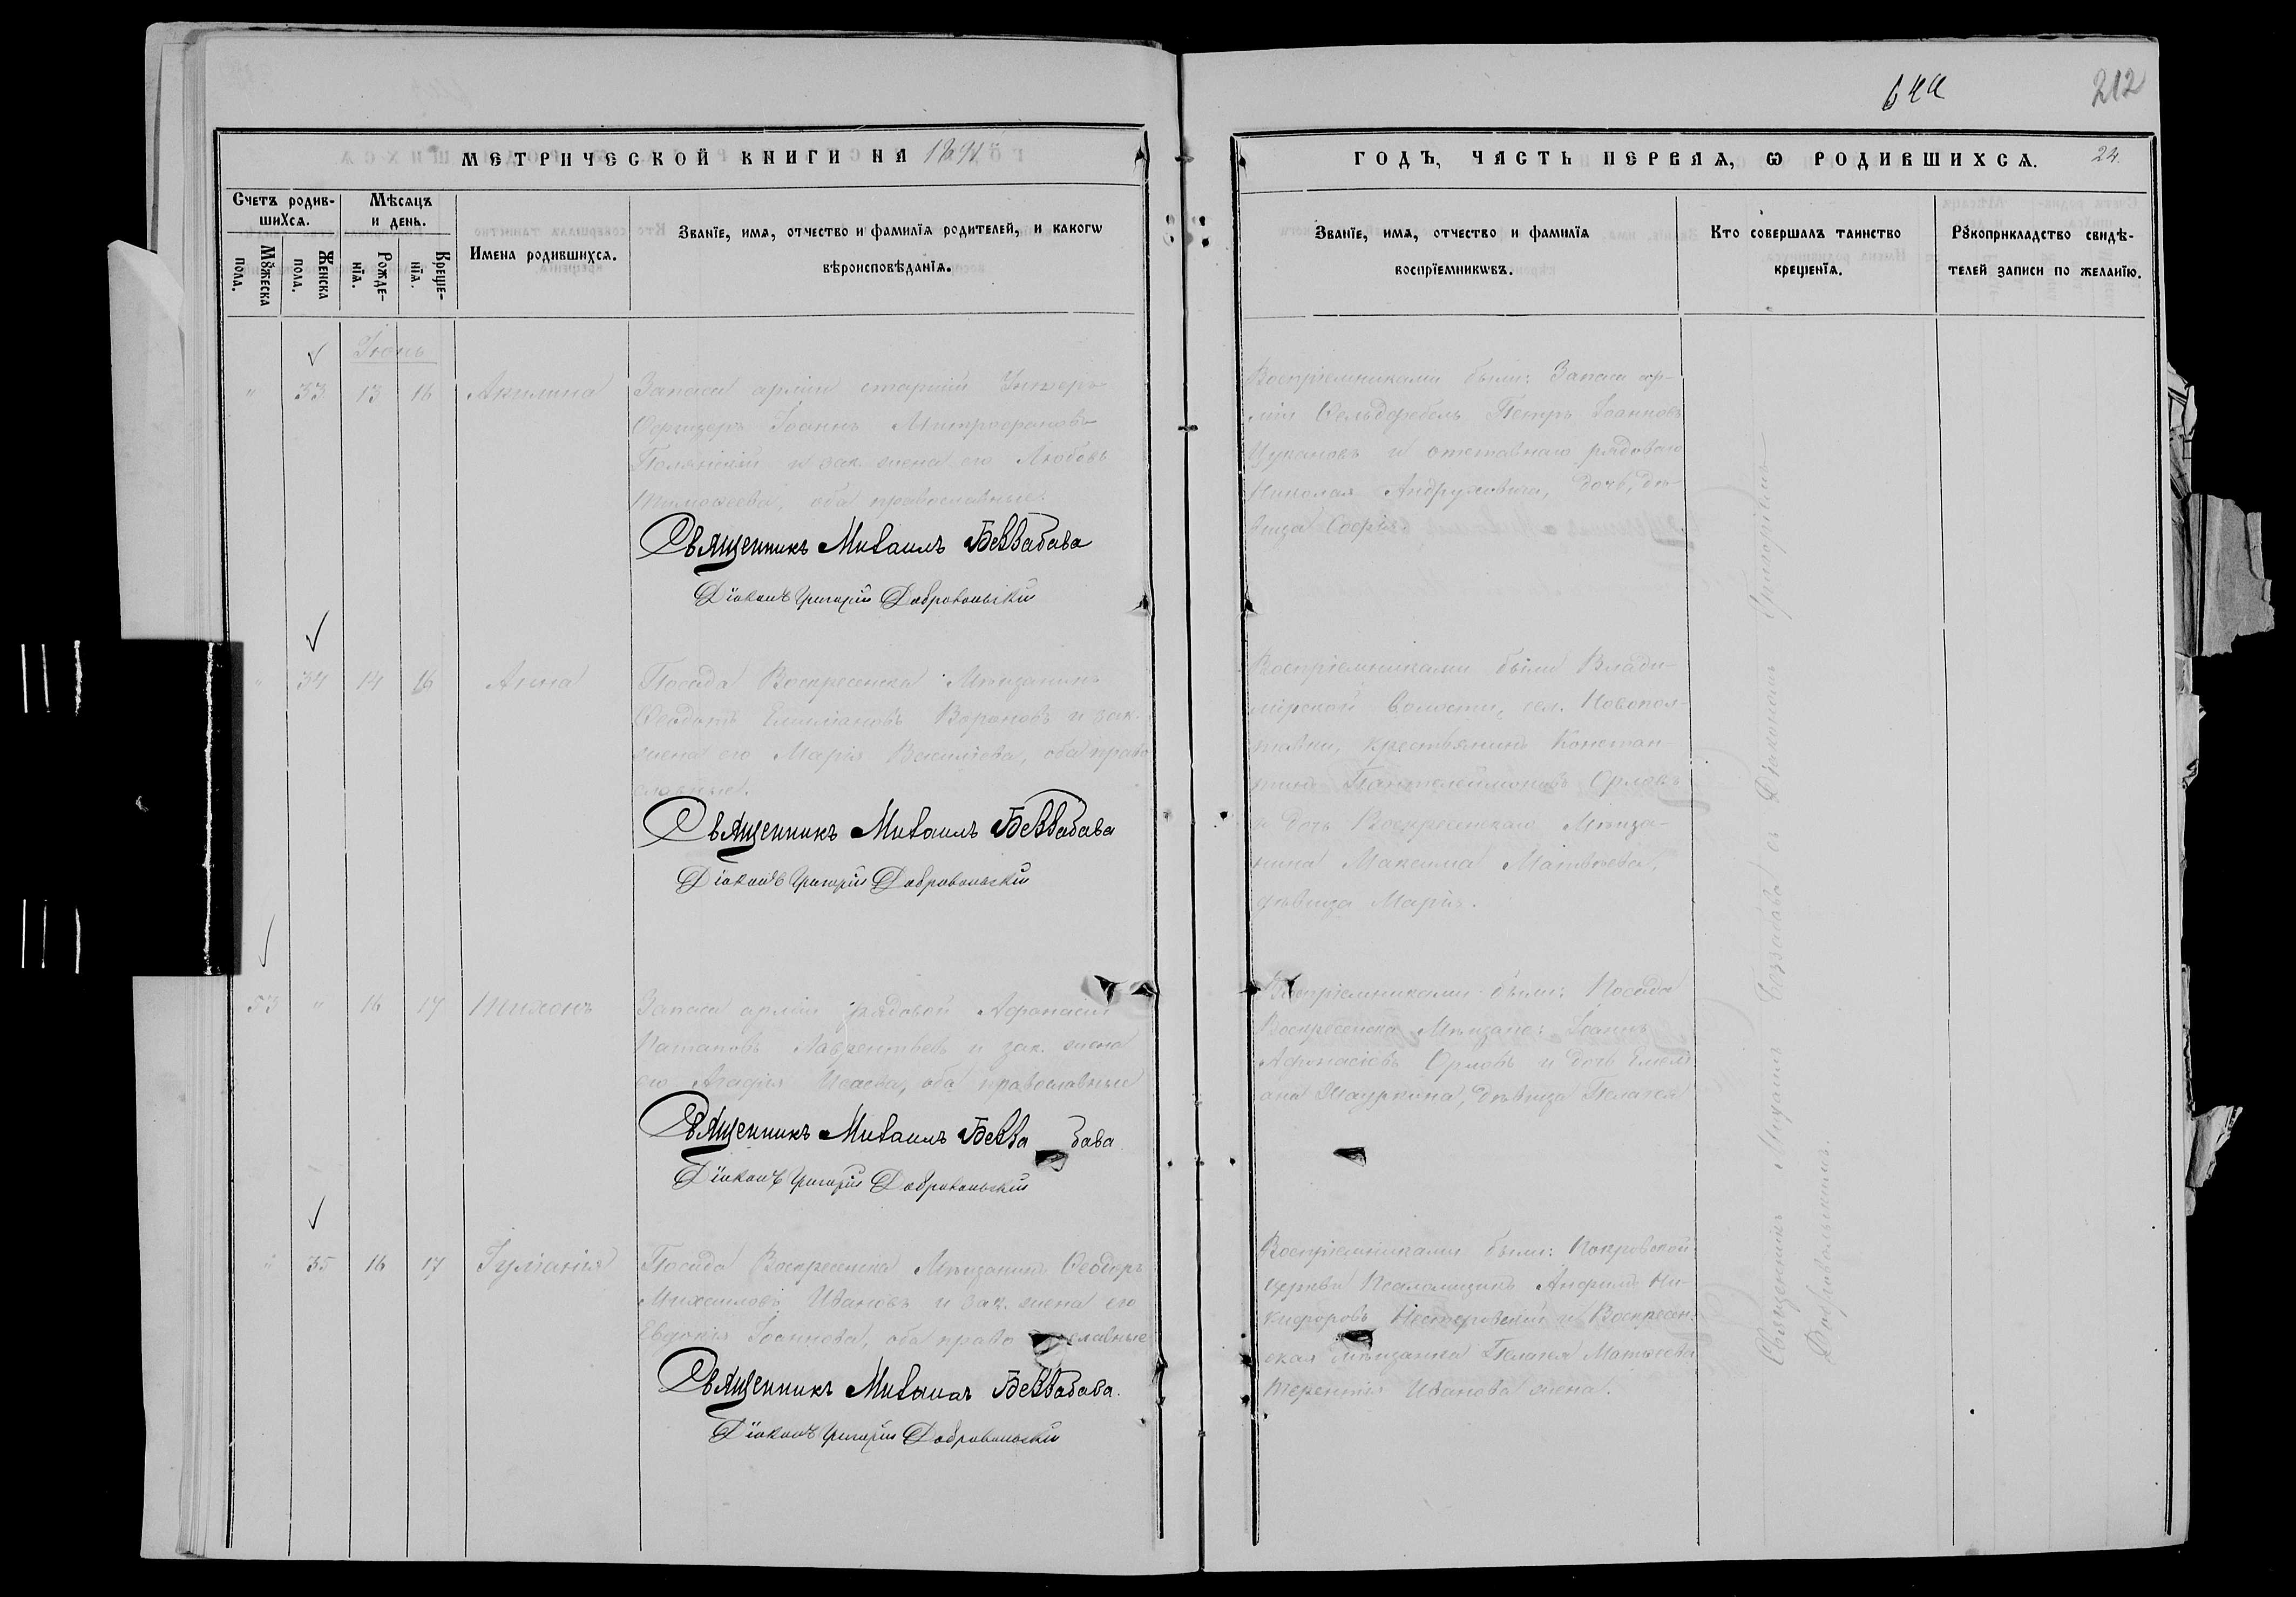 644
212
МЕТРИЧЕСКОЙ КНИГИ НА 1891
ГОДЪ, ЧАСТЬ ПЕРВАЯ, Ѡ РОДИВШИХСѦ. 24.
Счетъ родив-
шихсѧ.
Мѣсѧцъ
и день.
Мꙋжеска
пола.
Женска
пола.
Рожде-
нїѧ.
Креще-
нїѧ.
Имена родившихсѧ.
Званїе, имѧ, отчество и фамилїѧ родителей, и какогѡ
вѣроисповѣданїѧ.
Званїе, имѧ, отчество и фамилїѧ
воспрїемникѡвъ.
Кто совершалъ таинство
крещенїѧ.
Рꙋкоприкладство свидѣ-
телей записи по желанїю.
Іюнь
" 33 13 16 Акилина
Запаса арміи старшій Унтеръ-
Офицеръ Іоаннъ Митрофановъ
Полянскій и зак. жена его Любовь
Тимоѳеева, оба православные.
Священникъ Михаилъ Беззабава
Діаконъ Григорій Добровольскій
Воспріемниками были: Запаса ар-
міи Фельдфебель Петръ Іоанновъ
Цукановъ и отставнаго рядоваго
Николая Андруховича, дочь, дѣ-
вица Софія.
" 34 14 16 Анна
Посада Воскресенска Мѣщанинъ
Ѳеодотъ Емеліановъ Вороновъ и зак.
жена его Марія Василіева, оба право
славные.
Священникъ Михаилъ Беззабава
Діаконъ Григорій Добровольскій
Воспріемниками были Влади-
мірской волости, сел. Новопол-
тавки, крестьянинъ Констан
тинъ Пантелеимоновъ Орлокъ
и дочь Воскресенскаго Мѣща-
нина Максима Матвѣева,
дѣвица Марія.
53 " 16 17 Тихонъ
Запаса арміи рядовой Афанасій
Лаврентьевъ и зак. жена
его Агафія Исаева, оба православные
Священникъ Михаилъ Беззабава
Діаконъ Григорій Добровольскій
Воспріемниками были: Посада
Воскресенска Мѣщане: Іоаннъ
Афанасіевъ Орловъ и дочь Емели
ана дѣвица Пелагея
" 35 16 17 Іуліанія
Посада Воскресенска Мѣщанинъ Ѳеодоръ
Михаиловъ Ивановъ и зак. жена его
Евдокія Іоаннова, оба православные
Священникъ Михаилъ Беззабава.
Діаконъ Григорій Добровольскій
Воспріемниками были: Покровской
церкви Псаломщикъ Анфимъ Ни-
кифоровъ Нестеровскій и Воскресен-
ская мѣщанка Пелагея Матѳеева
Терентія Иванова жена.
Священникъ Михаилъ Беззабава съ Діакономъ Григоріемъ
Добровольскимъ.